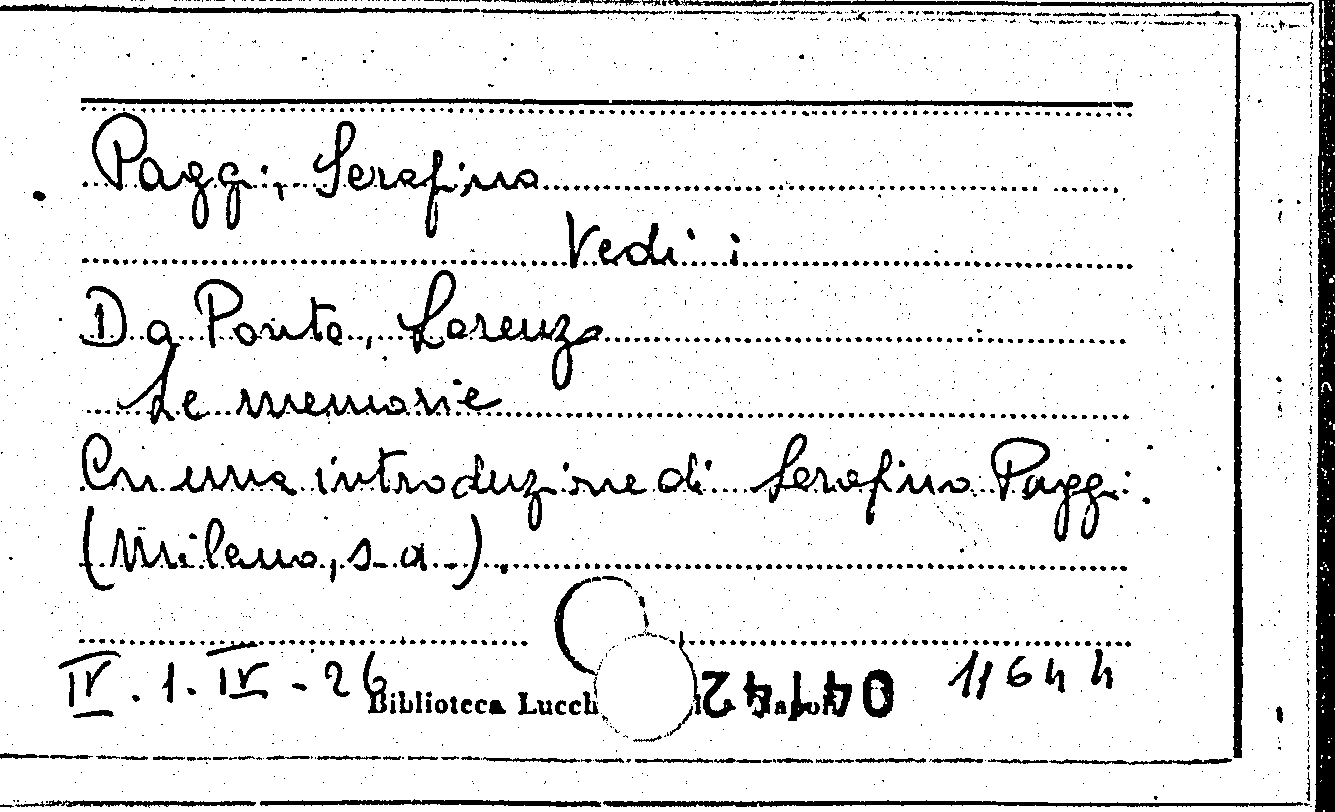 Paggi, Serafino
Vedi:
Da Ponte, Lorenzo
Le memorie
Con una introduzione di Serafino Paggi.
(Milano, s.a.).
IV.1.IV-26 11644
Biblioteca
04142